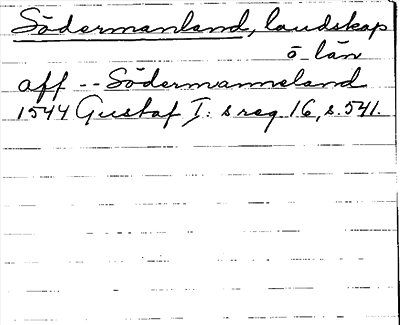 Södermanland, landskap
o län
aff -- Södermanneland
1544 Gustaf I:s reg 16, s. 541.